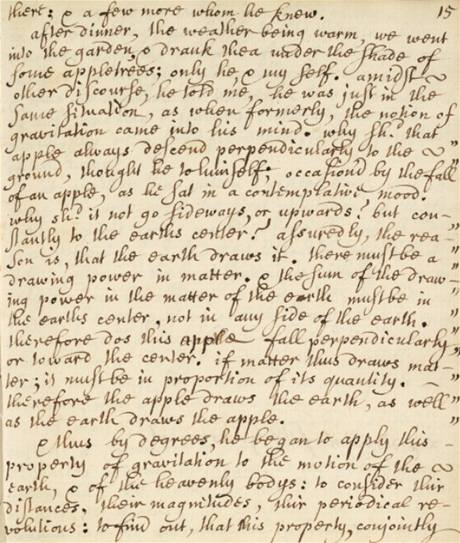 there: & a few more whom he knew. 15
after dinner, the weather being warm, we went
into the garden, & drank thea under the shade of
some appletrees; only he, & my self. amidst ~
other discourse, he told me, he was just in the
same situation, as when formerly, the notion of
gravitation came into his mind. why shd. that
apple always descend perpendicularly to the ~ "
ground, thought he to himself; occasion'd by the fall
of an apple, as he sat in a contemplative mood.
why shd. it not go sideways, or upwards? but con-
stantly to the earths center? assuredly, the rea- "
son is, that the earth draws it. there must be a "
drawing power in matter. & the sum of the draw- "
ing power in the matter of the earth must be in "
the earths center, not in any side of the earth. "
therefore dos this apple fall perpendicularly, "
or toward the center. if matter thus draws mat- "
ter; it must be in proportion of its quantity. - "
therefore the apple draws the earth, as well "
as the earth draws the apple. "
& thus by degrees, he began to apply this -
property of gravitation to the motion of the ~
earth, & of the heavenly bodys: to consider thir
distances, their magnitudes, thir periodical re-
volutions: to find out, that this property, conjointly